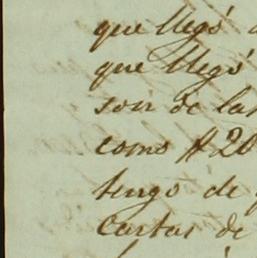 que llegó
que llegó
soir de las
como $20
tengo de
Cartas de